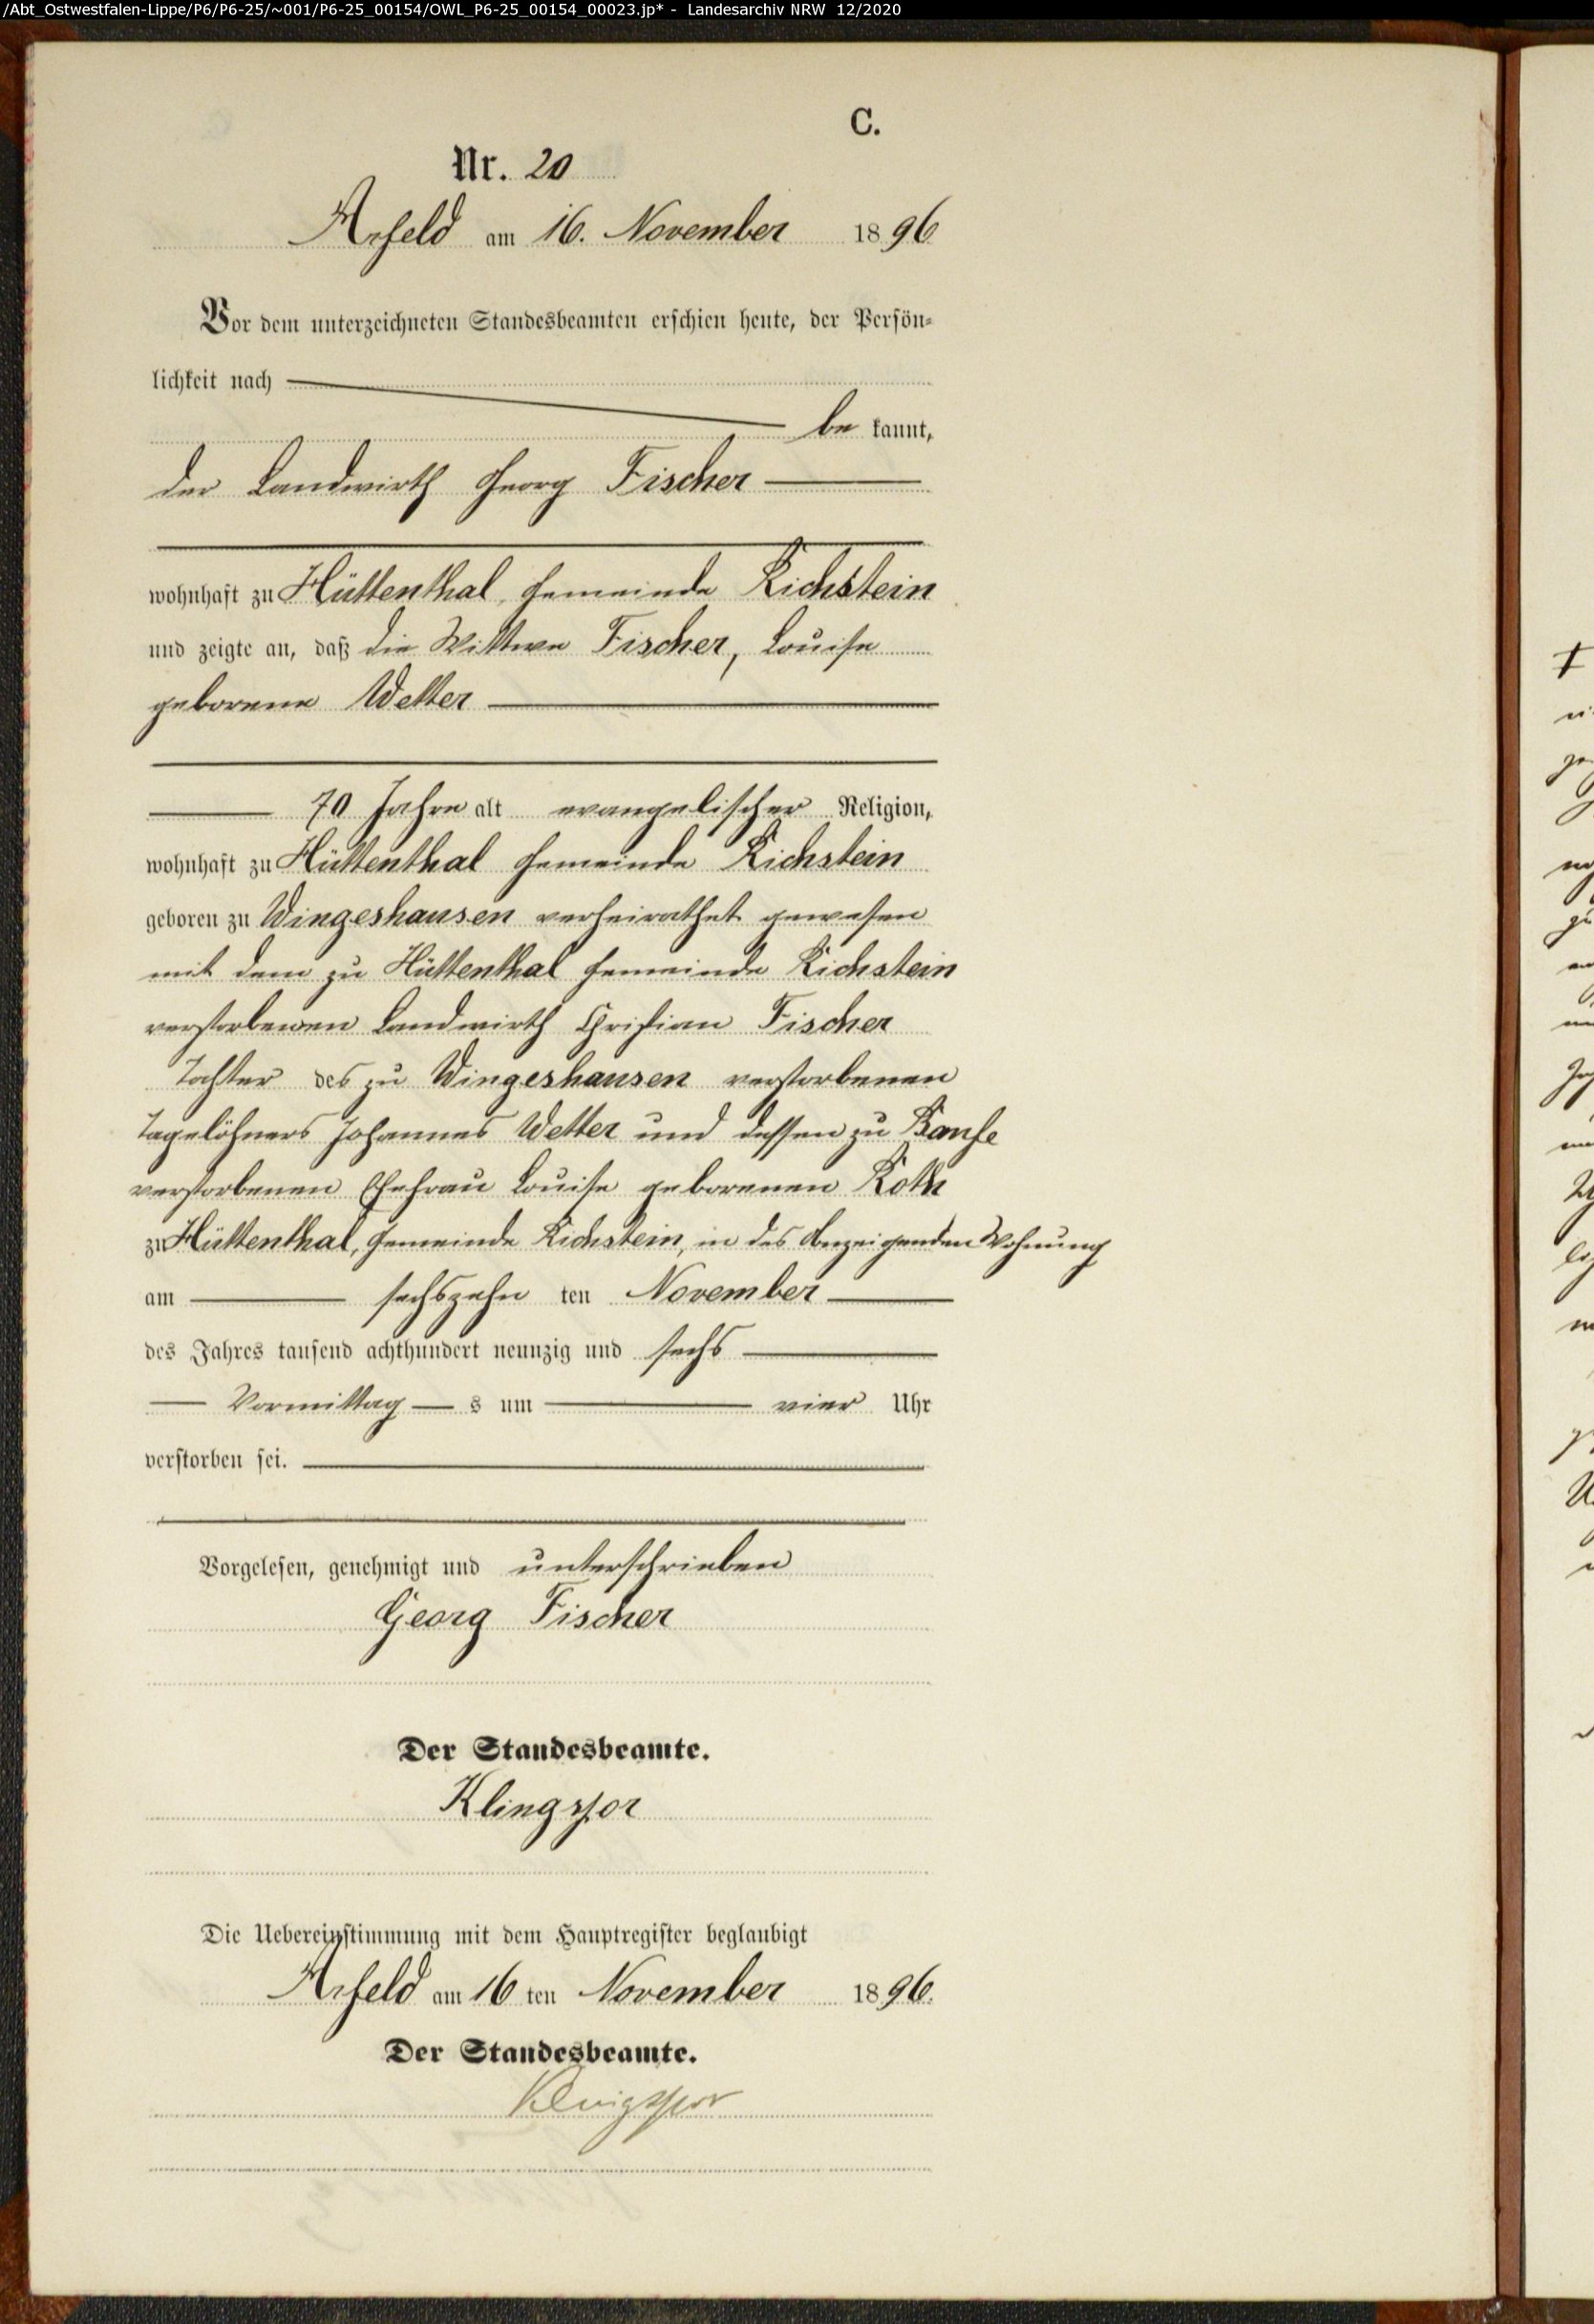 /Abt_Ostwestfalen-Lippe/P6/P6-25/~001/P6-25_00154/OWL_P6-25_00154_00023.jp* - Landesarchiv NRW 12/2020
C.
Nr. 20
Arfeld am 16. November 1896
Vor dem unterzeichneten Standesbeamten erschien heute, der Persön-
lichkeit nach
be kannt,
der Landwirth Georg Fischer
wohnhaft zu Hüttenthal, Gemeinde Richstein
und zeigte an, daß die Wittwe Fischer, Louise
geborene Wetter
70 Jahre alt evangelischer Religion,
wohnhaft zu Hüttenthal Gemeinde Richstein
geboren zu Wingeshausen verheirathet gewesen
mit dem zu Hüttenthal Gemeinde Richstein
verstorbenen Landwirth Christian Fischer
Tochter des zu Wingeshausen verstorbenen
Tagelöhners Johannes Wetter und dessen zu Banfe
verstorbenen Ehefrau Louise geborenen Roth
zu Hüttenthal, Gemeinde Richstein, in des Anzeigenden Wohnung
am sechszehn ten November
des Jahres tausend achthundert neunzig und sechs
Vormittag s um vier Uhr
verstorben sei.
Vorgelesen, genehmigt und unterschrieben
Georg Fischer
Der Standesbeamte.
Klingspor
Die Uebereinstimmung mit dem Hauptregister beglaubigt
Arfeld am 16 ten November 1896.
Der Standesbeamte.
Klingspor